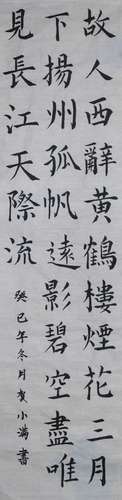 故人西辭黃鶴樓煙花三月
下揚州孤帆遠影碧空盡唯
見長江天際流
癸巳年冬月賀小滿書